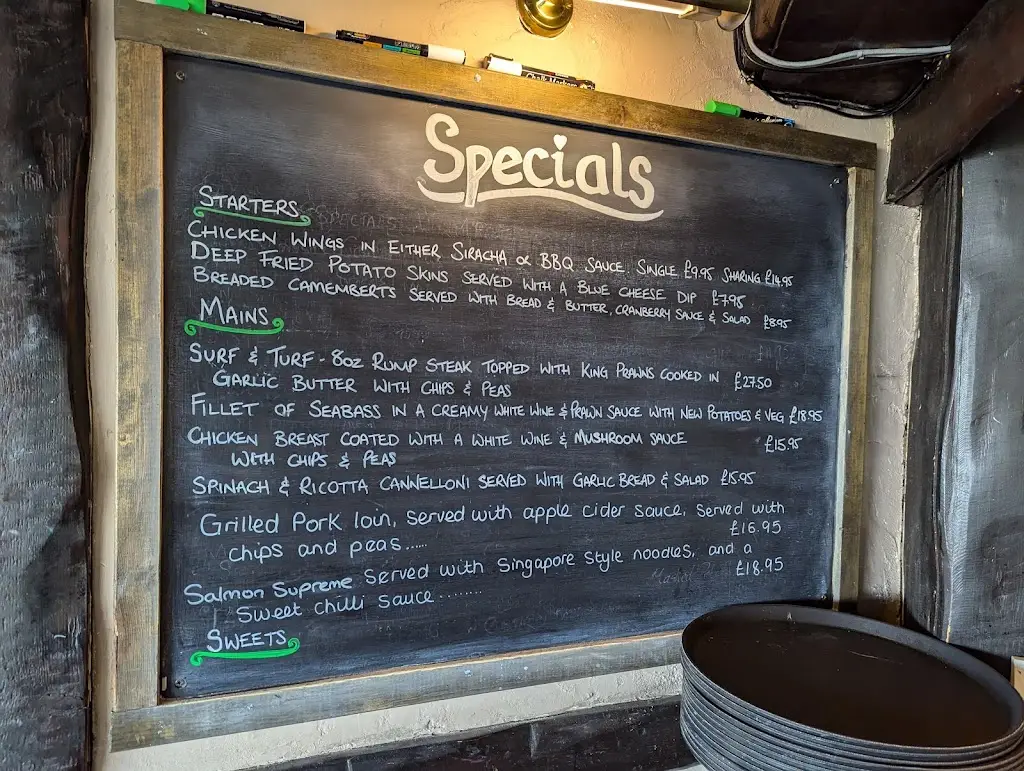 Chalk Marker
Specials
STARTERS
CHICKEN WINGS IN EITHER SIRACHA OR BBQ SAUCE. SINGLE £9.95 SHARING £14.95
DEEP FRIED POTATO SKINS SERVED WITH A BLUE CHEESE DIP £7.95
BREADED CAMEMBERTS SERVED WITH BREAD & BUTTER, CRANBERRY SAUCE & SALAD £8.95
MAINS
SURF & TURF - 8OZ RUMP STEAK TOPPED WITH KING PRAWNS COOKED IN £27.50
GARLIC BUTTER WITH CHIPS & PEAS
FILLET OF SEABASS IN A CREAMY WHITE WINE & PRAWN SAUCE WITH NEW POTATOES & VEG £18.95
CHICKEN BREAST COATED WITH A WHITE WINE & MUSHROOM SAUCE £15.95
WITH CHIPS & PEAS
SPINACH & RICOTTA CANNELLONI SERVED WITH GARLIC BREAD & SALAD £15.95
Grilled Pork loin, served with apple cider sauce, served with
chips and peas..... £16.95
Salmon Supreme served with Singapore style noodles, and a
sweet chilli sauce ........ £18.95
SWEETS